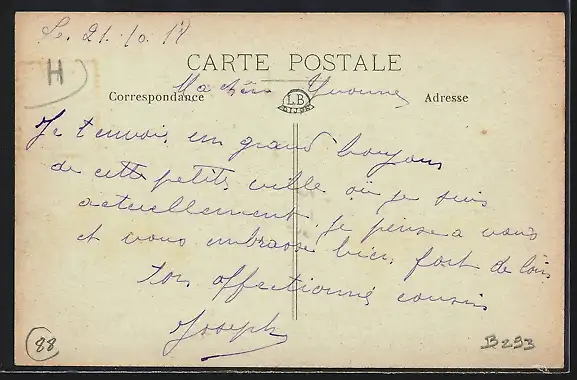 Le. 21. 10. 17
CARTE POSTALE
H
Ma chère Yvonne
Correspondance
LB
DIJON
Adresse
Je t'envois un grand bonjour
de cette petite ville où je suis
actuellement. je pense a vous
et vous embrasse bien fort de loin
ton affectionné cousin
Joseph
88
B293